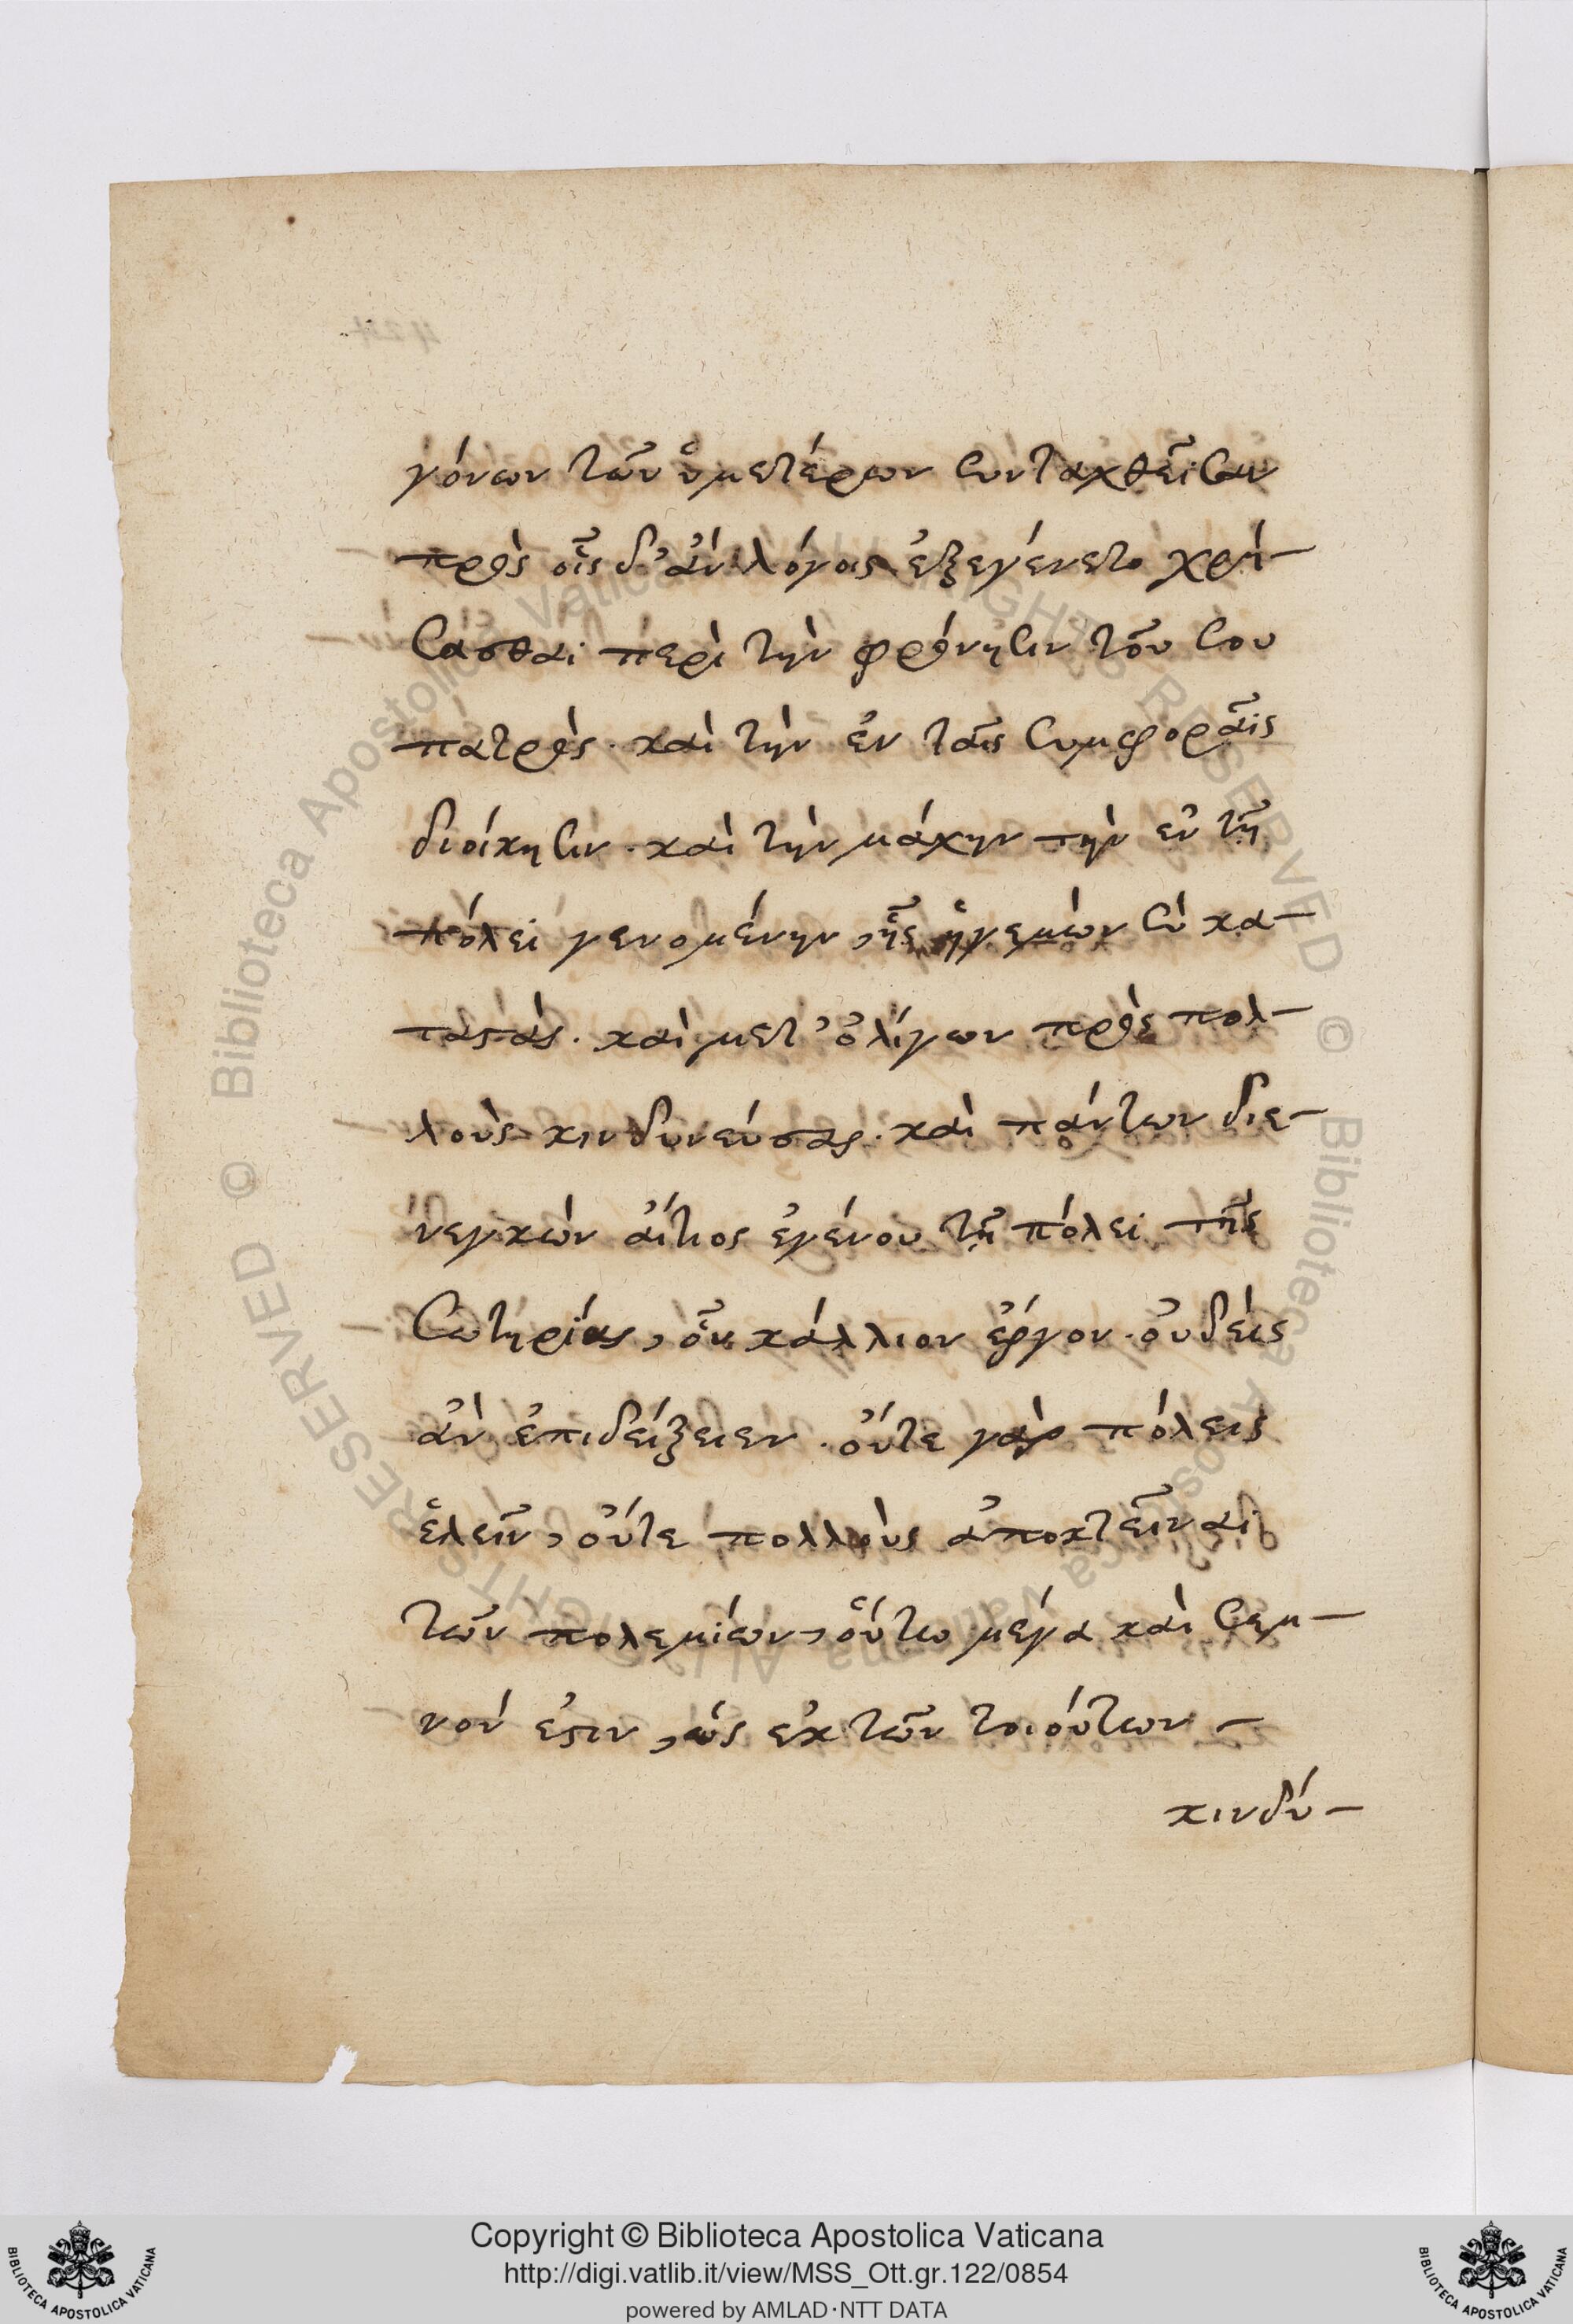 γόνων τῶν ὑμετέρων συνταχθεῖσαν
πρὸς οἷς δ' ἂν λόγοις ἐξεγένετο χρή-
σασθαι περὶ τὴν φρόνησιν τοῦ σου
πατρὸς. καὶ τὴν ἐν ταῖς συμφοραῖς
διοίκησιν. καὶ τὴν μάχην τὴν ἐν τῇ
πόλει γενομένην, ἧς ἡγεμὼν σὺ κα-
ταστὰς. καὶ μετ' ὀλίγων πρὸς πολ-
λοὺς κινδυνεύσας. καὶ πάντων διε-
νεγκὼν αἴτιος ἐγένου τῇ πόλει τῆς
σωτηρίας, οὗ κάλλιον ἔργον. οὐδείς
ἂν ἐπιδείξειεν. οὔτε γὰρ πόλεις
ἑλεῖν, οὔτε πολλοὺς ἀποκτεῖναι
τῶν πολεμίων, οὕτω μέγα καὶ σεμ-
νόν ἐστιν, ὡς ἐκ τῶν τοιούτων -
κινδύ-
Copyright © Biblioteca Apostolica Vaticana
http://digi.vatlib.it/view/MSS_Ott.gr.122/0854
powered by AMLAD·NTT DATA
BIBLIOTECA APOSTOLICA VATICANA
BIBLIOTECA APOSTOLICA VATICANA
© Biblioteca Apostolica Vaticana ALL RIGHTS RESERVED